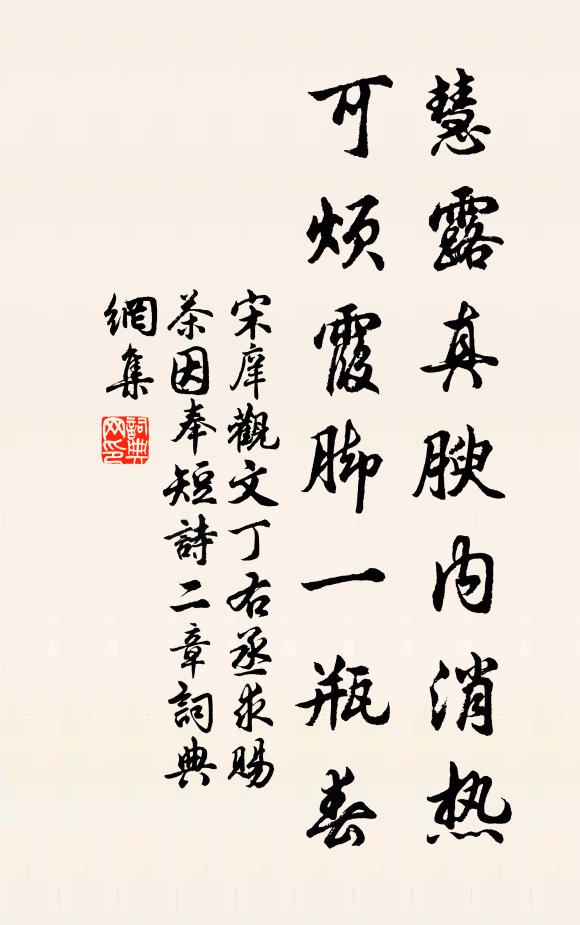 慧露真腴内消热
可烦霞脚一瓶春
宋庠觀文丁右丞求賜
茶因奉短詩二章詞典
網集
詞典網印